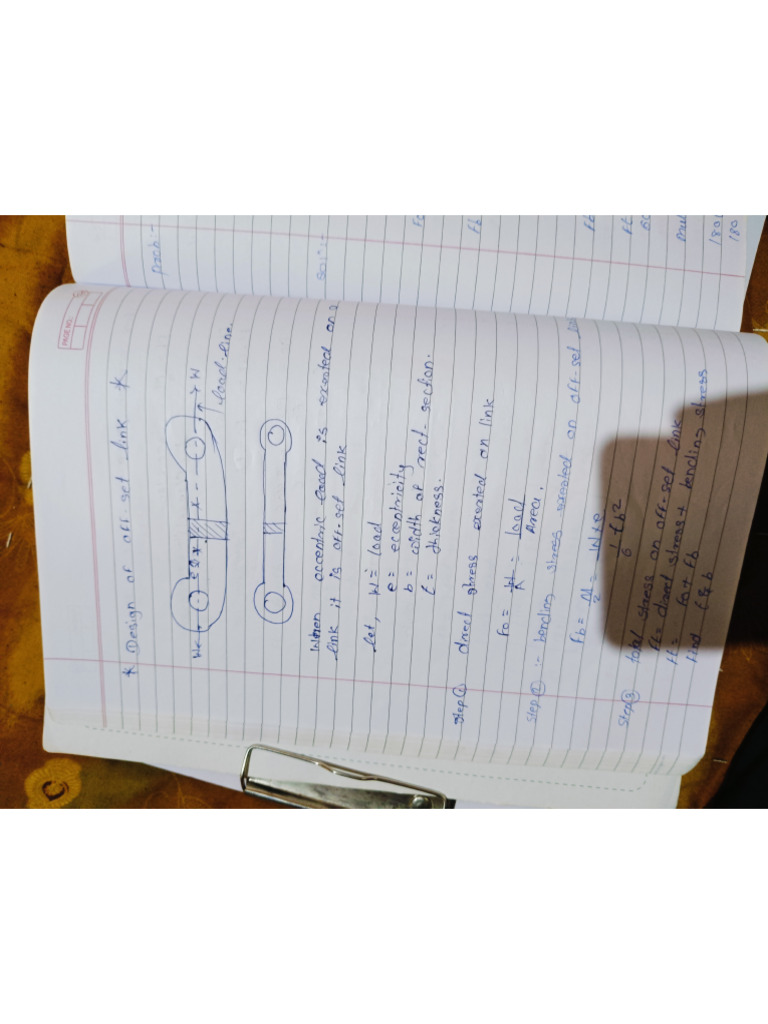 PAGE NO.
* Design of off-set link *
W← e → W
load-line.
When accentric load is exeated on a
link it is off-set link
let, W = load
e = eccentricity
b = width of rect-section.
t = thickness.
Step ① direct stress exeated on link
Fo = W/A = load/Area.
Step ② :- bending stress exeated on off-set link
Fb = M/Z = W×e / 1/6 tb²
Step ③ total stress on off-set link
Ft = direct stress + bending stress
Ft = Fo + Fb
find t & b
Prob:-
Soln:-
Fo
Fb
Fb
Ft
180